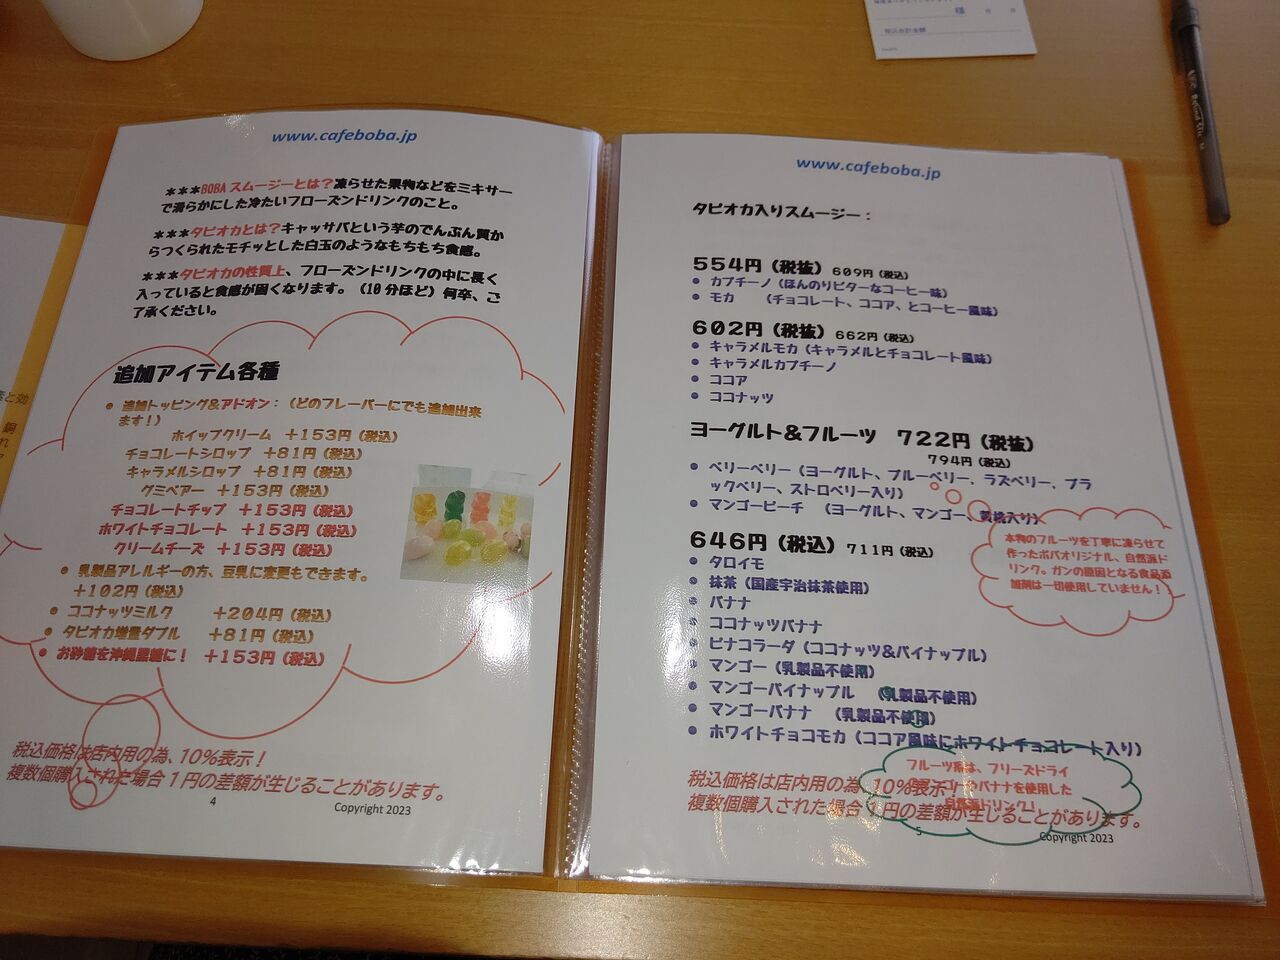 様
税込合計金額
www.cafeboba.jp
***BOBAスムージーとは?凍らせた果物などをミキサー
で滑らかにした冷たいフローズンドリンクのこと。
***タピオカとは?キャッサバという芋のでんぷん質か
らつくられたモチッとした白玉のようなもちもち食感。
***タピオカの性質上、フローズンドリンクの中に長く
入っていると食感が固くなります。(10分ほど)何卒、ご
了承ください。
追加アイテム各種
● 追加トッピング&アドオン:(どのフレーバーにでも追加出来
ます!)
ホイップクリーム +153円(税込)
チョコレートシロップ +81円(税込)
キャラメルシロップ +81円(税込)
グミベアー +153円(税込)
チョコレートチップ +153円(税込)
ホワイトチョコレート +153円(税込)
クリームチーズ +153円(税込)
● 乳製品アレルギーの方、豆乳に変更もできます。
+102円(税込)
● ココナッツミルク +204円(税込)
● タピオカ増量ダブル +81円(税込)
● お砂糖を沖縄黒糖に! +153円(税込)
税込価格は店内用の為、10%表示!
複数個購入された場合1円の差額が生じることがあります。
4
Copyright 2023
www.cafeboba.jp
タピオカ入りスムージー:
554円(税抜) 609円(税込)
● カプチーノ(ほんのりビターなコーヒー味)
● モカ (チョコレート、ココア、とコーヒー風味)
602円(税抜) 662円(税込)
● キャラメルモカ(キャラメルとチョコレート風味)
● キャラメルカプチーノ
● ココア
● ココナッツ
ヨーグルト&フルーツ 722円(税抜)
794円(税込)
● ベリーベリー(ヨーグルト、ブルーベリー、ラズベリー、ブラ
ックベリー、ストロベリー入り)
● マンゴーピーチ (ヨーグルト、マンゴー、黄桃入り)
本物のフルーツを丁寧に凍らせて
作ったボバオリジナル、自然派ド
リンク。ガンの原因となる食品添
加剤は一切使用していません!
646円(税込) 711円(税込)
● タロイモ
● 抹茶(国産宇治抹茶使用)
● バナナ
● ココナッツバナナ
● ピナコラーダ(ココナッツ&パイナップル)
● マンゴー(乳製品不使用)
● マンゴーパイナップル (乳製品不使用)
● マンゴーバナナ (乳製品不使用)
● ホワイトチョコモカ(ココア風味にホワイトチョコレート入り)
フルーツ系は、フリーズドライ
やバナナを使用した
自然派ドリンク!
税込価格は店内用の為、10%表示!
複数個購入された場合1円の差額が生じることがあります。
5
Copyright 2023